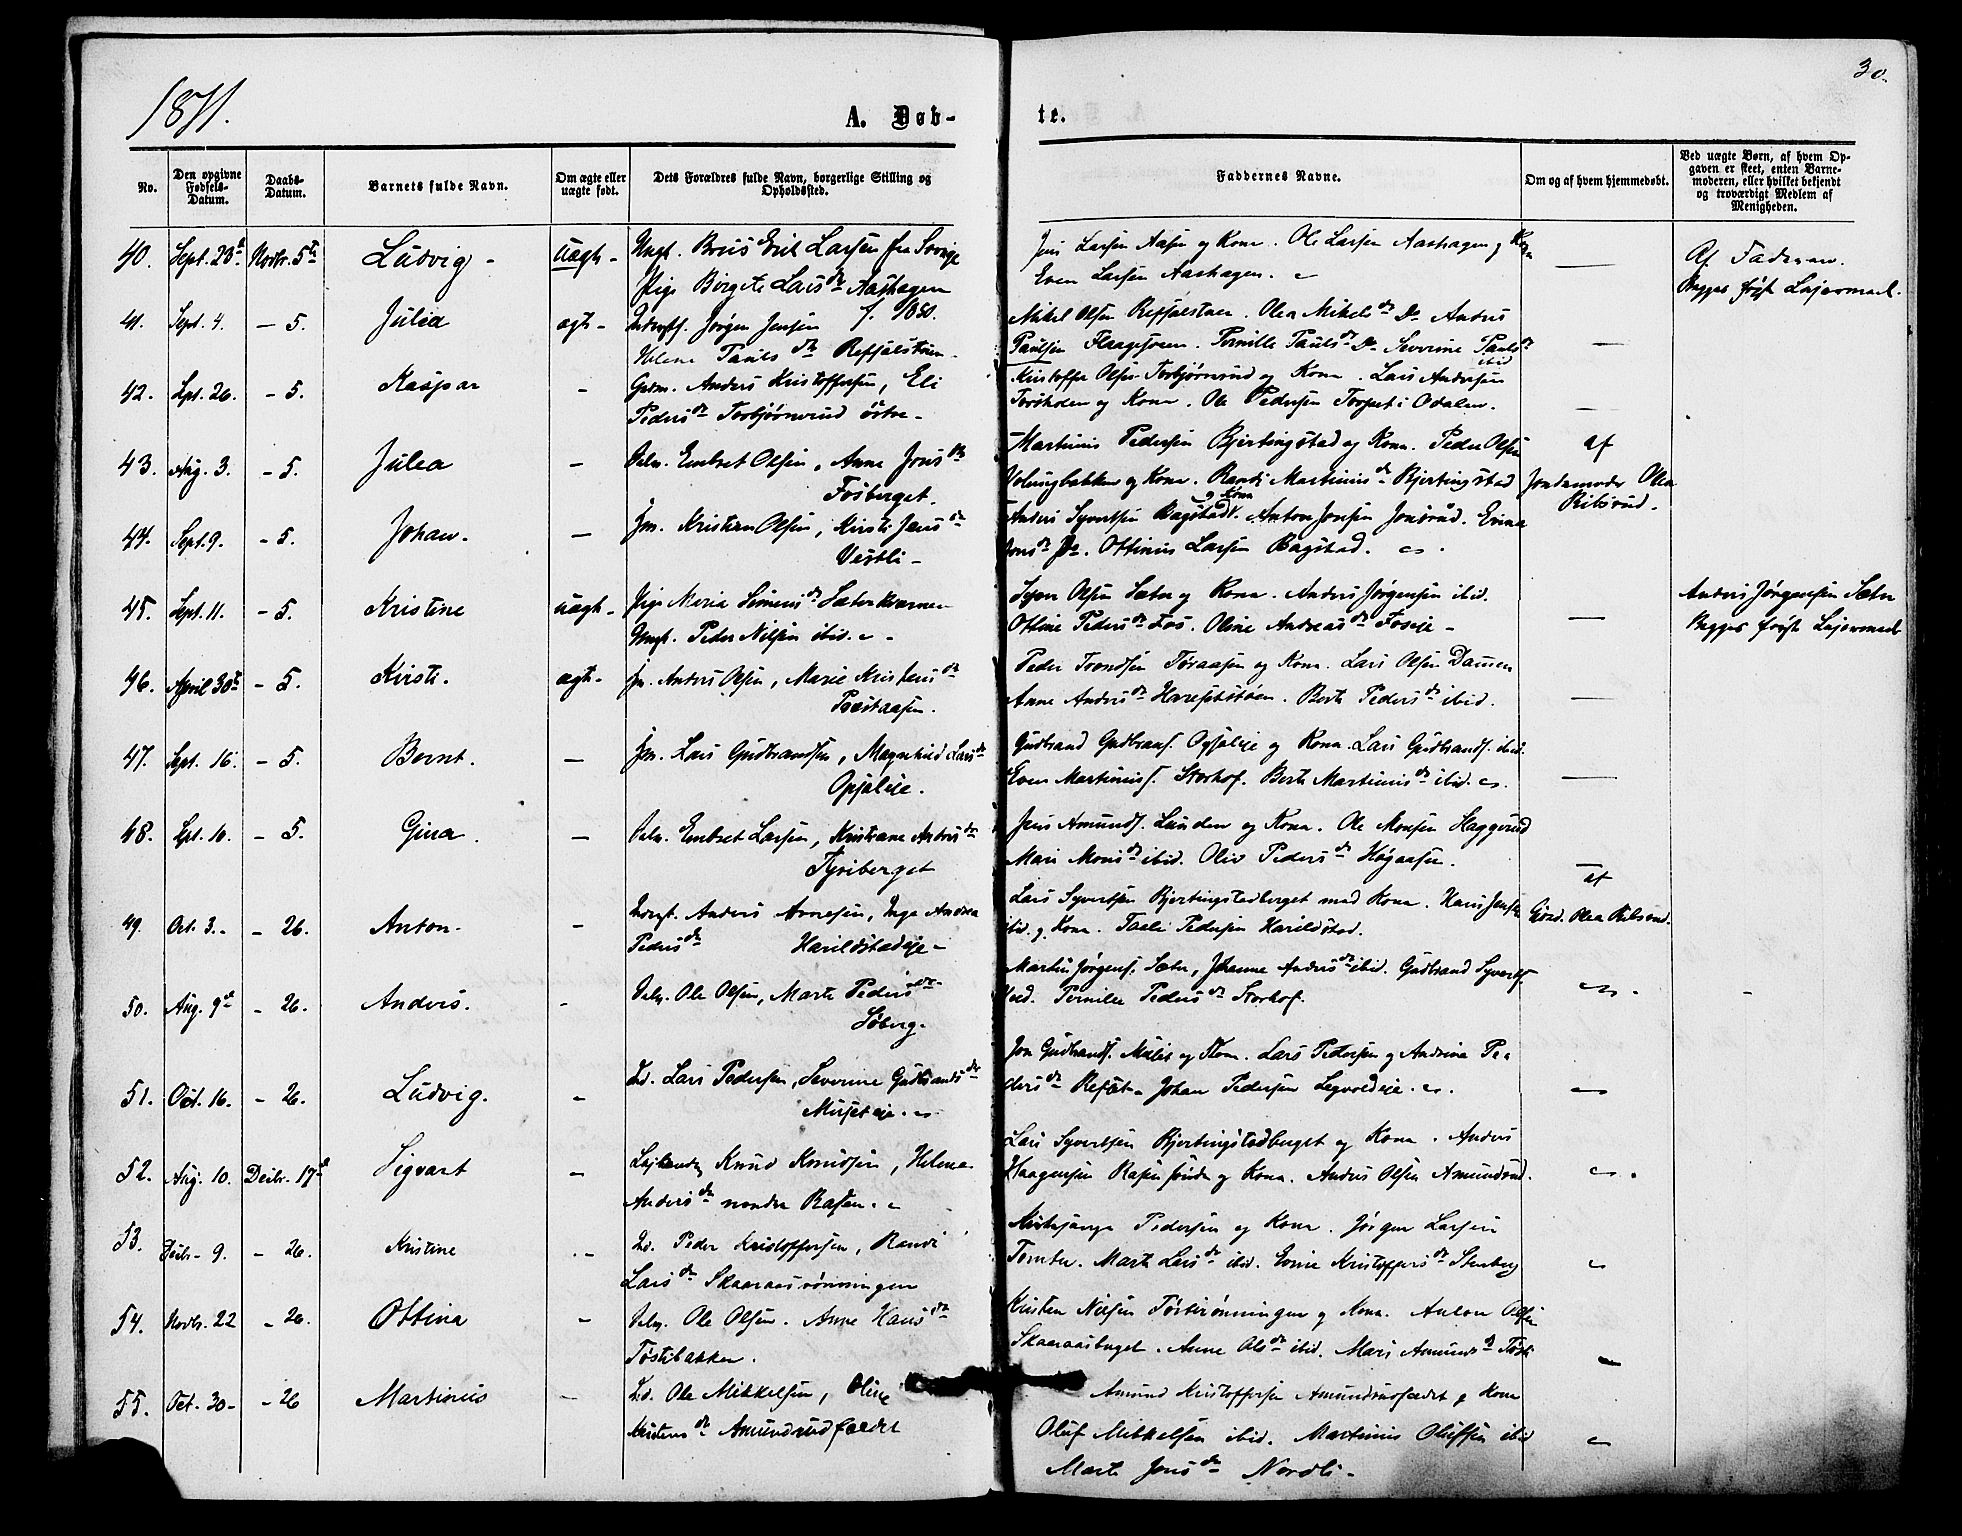 1871.
30.
A. Døb-
te.
No.
Den opgivne Fødsels-Datum.
Daabs-Datum.
Barnets fulde Navn.
Om ægte eller uægte født.
Dets Forældres fulde Navn, borgerlige Stilling og Opholdssted.
Faddernes Navne.
Om og af hvem hjemmedøbt.
Ved uægte Børn, af hvem Opgaven er skeet, enten Barnemoderen, eller hvilket bekjendt og troværdigt Medlem af Menigheden.
40. Sept. 23d Novbr. 5te Ludvig - uægt -
Ungk. Erik Larsen fra Sverige
Pige Birgete Larsdr Aashagen
Jens Larsen Aasen og Kona. Ole Larsen Aashagen og Kona
Even Larsen Aashagen.
Af Faderen.
Begges første Lejermaal.
41. Sept. 4. - 5. Julia ægt -
Jørgen Jensen f. 1850.
Helene Paulsdr Refsalstuen
Mikel Olsen Refsalstuen. Olea Mikelsdr Do Anders
Paulsen. Pernille Paulsdr Do Severine Paulsdr
ibid
42. Spt. 26. - 5. Kaspar -
Grdm. Anders Kristoffersen, Eli
Pedersdr Torbjørnrud østre -
Kristoffer Olsen Torbjørnrud og Kona. Lars Andersen
og Kona. Ole Pedersen i Odalen.
43. Aug. 3. - 5. Julea -
Embret Olsen, Anne Jonsdr
Fosberget.
Martinus Pedersen Bjertingstad og Kona. Peder Olsen
og Kona. Randi Martinusdr Bjertingstad
af
Jordemoder Olea
Rilsrud.
44. Sept. 9. - 5. Johan. -
Jm. Kristian Olsen, Kirsti Jensdr
Vestli -
Anders Syvertsen Bagstad og Kona. Anton Jonsen Jonsrud. Evina
Jonsdr Do. Ottinus Larsen Bagstad.
45. Sept. 11. - 5. Kristine uægt -
Pige Maria Simensdr Sæterkværnen
Ungk. Peder Nilsen ibid.
Syver Olsen Sæter og Kona. Anders Jørgensen ibid.
Ottine Pedersdr Fos. Oline Andreasdr Foseje -
Anders Jørgensen Sæter
Begges første Lejermaal
46. April 30te - 5. Kirsti. ægt -
Jm. Anders Olsen, Marie Kristensdr
Præstaasen.
Peder Trondsen Toraasen og Kona. Lars Olsen Dammen
Anne Andersdr. Berte Pedersdr ibid.
47. Sept. 16. - 5. Bernt. -
Jm. Lars Gudbrandsen, Magnhild Larsdr
Opsaleje.
Gudbrand Gudbrans. Opsaleje og Kona. Lars Gudbrands. ibid.
Even Martinuss. Storhof. Berte Martinusdr ibid.
48. Spt. 10. - 5. Gina. -
Embret Larsen, Kristiane Andersdr
Tyriberget
Jens Amunds. Lunden og Kona. Ole Monsen Haggerud
Mari Monsdr ibid. Oliv Pedersdr Høgaasen.
49. Oct. 3. - - 26. Anton. -
Anders Arnesen, Inga Andrea
Pedersdr Harildstadeje -
Lars Syvertsen Bjertingstadberget med Kona. Hans Jensen
ibid. og Kona. Pedersen Harildstad.
af
Jord. Olea Rilsrud.
50. Aug. 9de - 26. Anders. -
Ole Olsen, Marte Pedersdr
Søberg.
Martin Jørgens. Sæter, Johanne Andersdr ibid. Gudbrand Syverts.
Pernille Pedersdr Storhof.
51. Oct. 16. - 26. Ludvig. -
Lars Pedersen, Severine Gudbrandsdr
Jon Gudbrands. og Kona. Lars Pedersen og Andrine Pe-
dersdr. Johan Pedersen.
52. Aug. 10. Decbr. 17de Sigvart -
Knud Knudsen, Helene
Andersdr nordre Rasen.
Lars Syvertsen Bjertingstadberget og Kona. Anders
Haagensen Rasen søndre og Kona. Anders Olsen Amundrud.
53. Decbr. 9. - 26. Kristine -
Peder Kristoffersen, Randi
Larsdr Skaaraasrønningen
Kirkesanger Pedersen og Kona. Jørgen Larsen
Tomter. Marte Larsdr ibid. Kristoffersdr Stenberg
54. Novbr. 22 - 26. Ottina -
Ole Olsen. Anne Hansdr
Tøstibakken.
Kristen Nilsen Tøstirønningen og Kona. Anton Olsen
Skaaraasberget. Anne Olsdr ibid. Mari Amundsdr Tøsti
55. Oct. 30 - - 26 Martinius -
Ole Mikkelsen, Oline
Kristensdr Amundrudfæedet
Amund Kristoffersen og Kona
Oluf Mikkelsen ibid. Martinus Olufsen ibid
Marte Jonsdr Nordli -